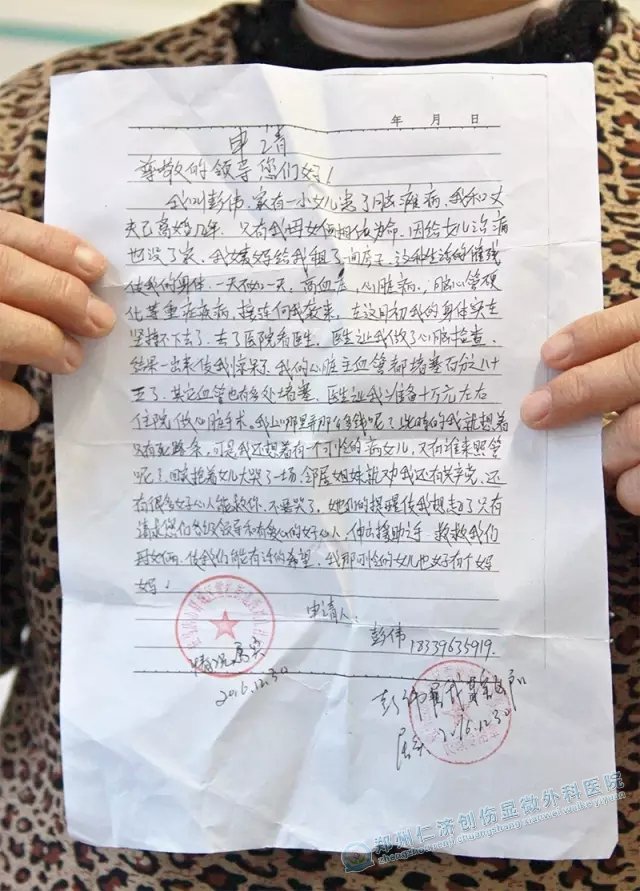 年 月 日
申请
尊敬的领导您们好！
我叫彭伟，家有一小女儿害了脑瘫病，我和丈
夫已离婚几年，只有我母女俩相依为命，因给女儿治病
也没了家，我妹妹给我租了一间房子，这种生活的摧残
使我的身体，一天不如一天，高血压，心脏病，脑心管硬
化等重症疾病，接连向我袭来，在这月初我的身体实在
坚持不下去了，去了医院看医生，医生让我做了心脏检查，
结果一出来使我惊呆了，我的心脏主血管都堵塞百分八十
五了，其它血管也有多处堵塞，医生让我准备十万元左右
住院做心脏手术，我上哪里弄那么多钱呢？此时的我就想着
只有死路一条，可是我还想着有一个可怜的病女儿，又有谁来照管
呢？回来抱着女儿大哭了一场，邻居姐妹就劝我还有共产党，还
有很多好心人能救你，不要哭了，她们的提醒使我想起了只有
请求您们各级领导和有爱心的好心人，伸出援助之手，救救我们
母女俩，使我们能有活的希望，我那可怜的女儿也好有个妈
妈！
申请人：
彭伟 18339635919.
情况属实
2016.12.30
彭伟
居实 2016.12.30
郑州仁济创伤显微外科医院
zhengzhou renji chuangshang xianwei waike yiyuan